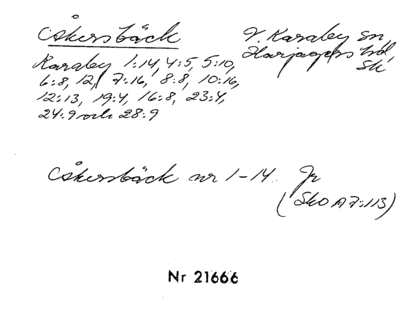 Åkersbäck
V. Karaby sn,
Harjagers hd,
Sk
Karaby 1:14, 4:5, 5:10,
6:8, 12, 7:16, 8:8, 10:16,
12:13, 19:4, 16:8, 23:4,
24:9 och 28:9
Åkersbäck nr 1-14. Jr
(SkO A 7:113)
Nr 21666